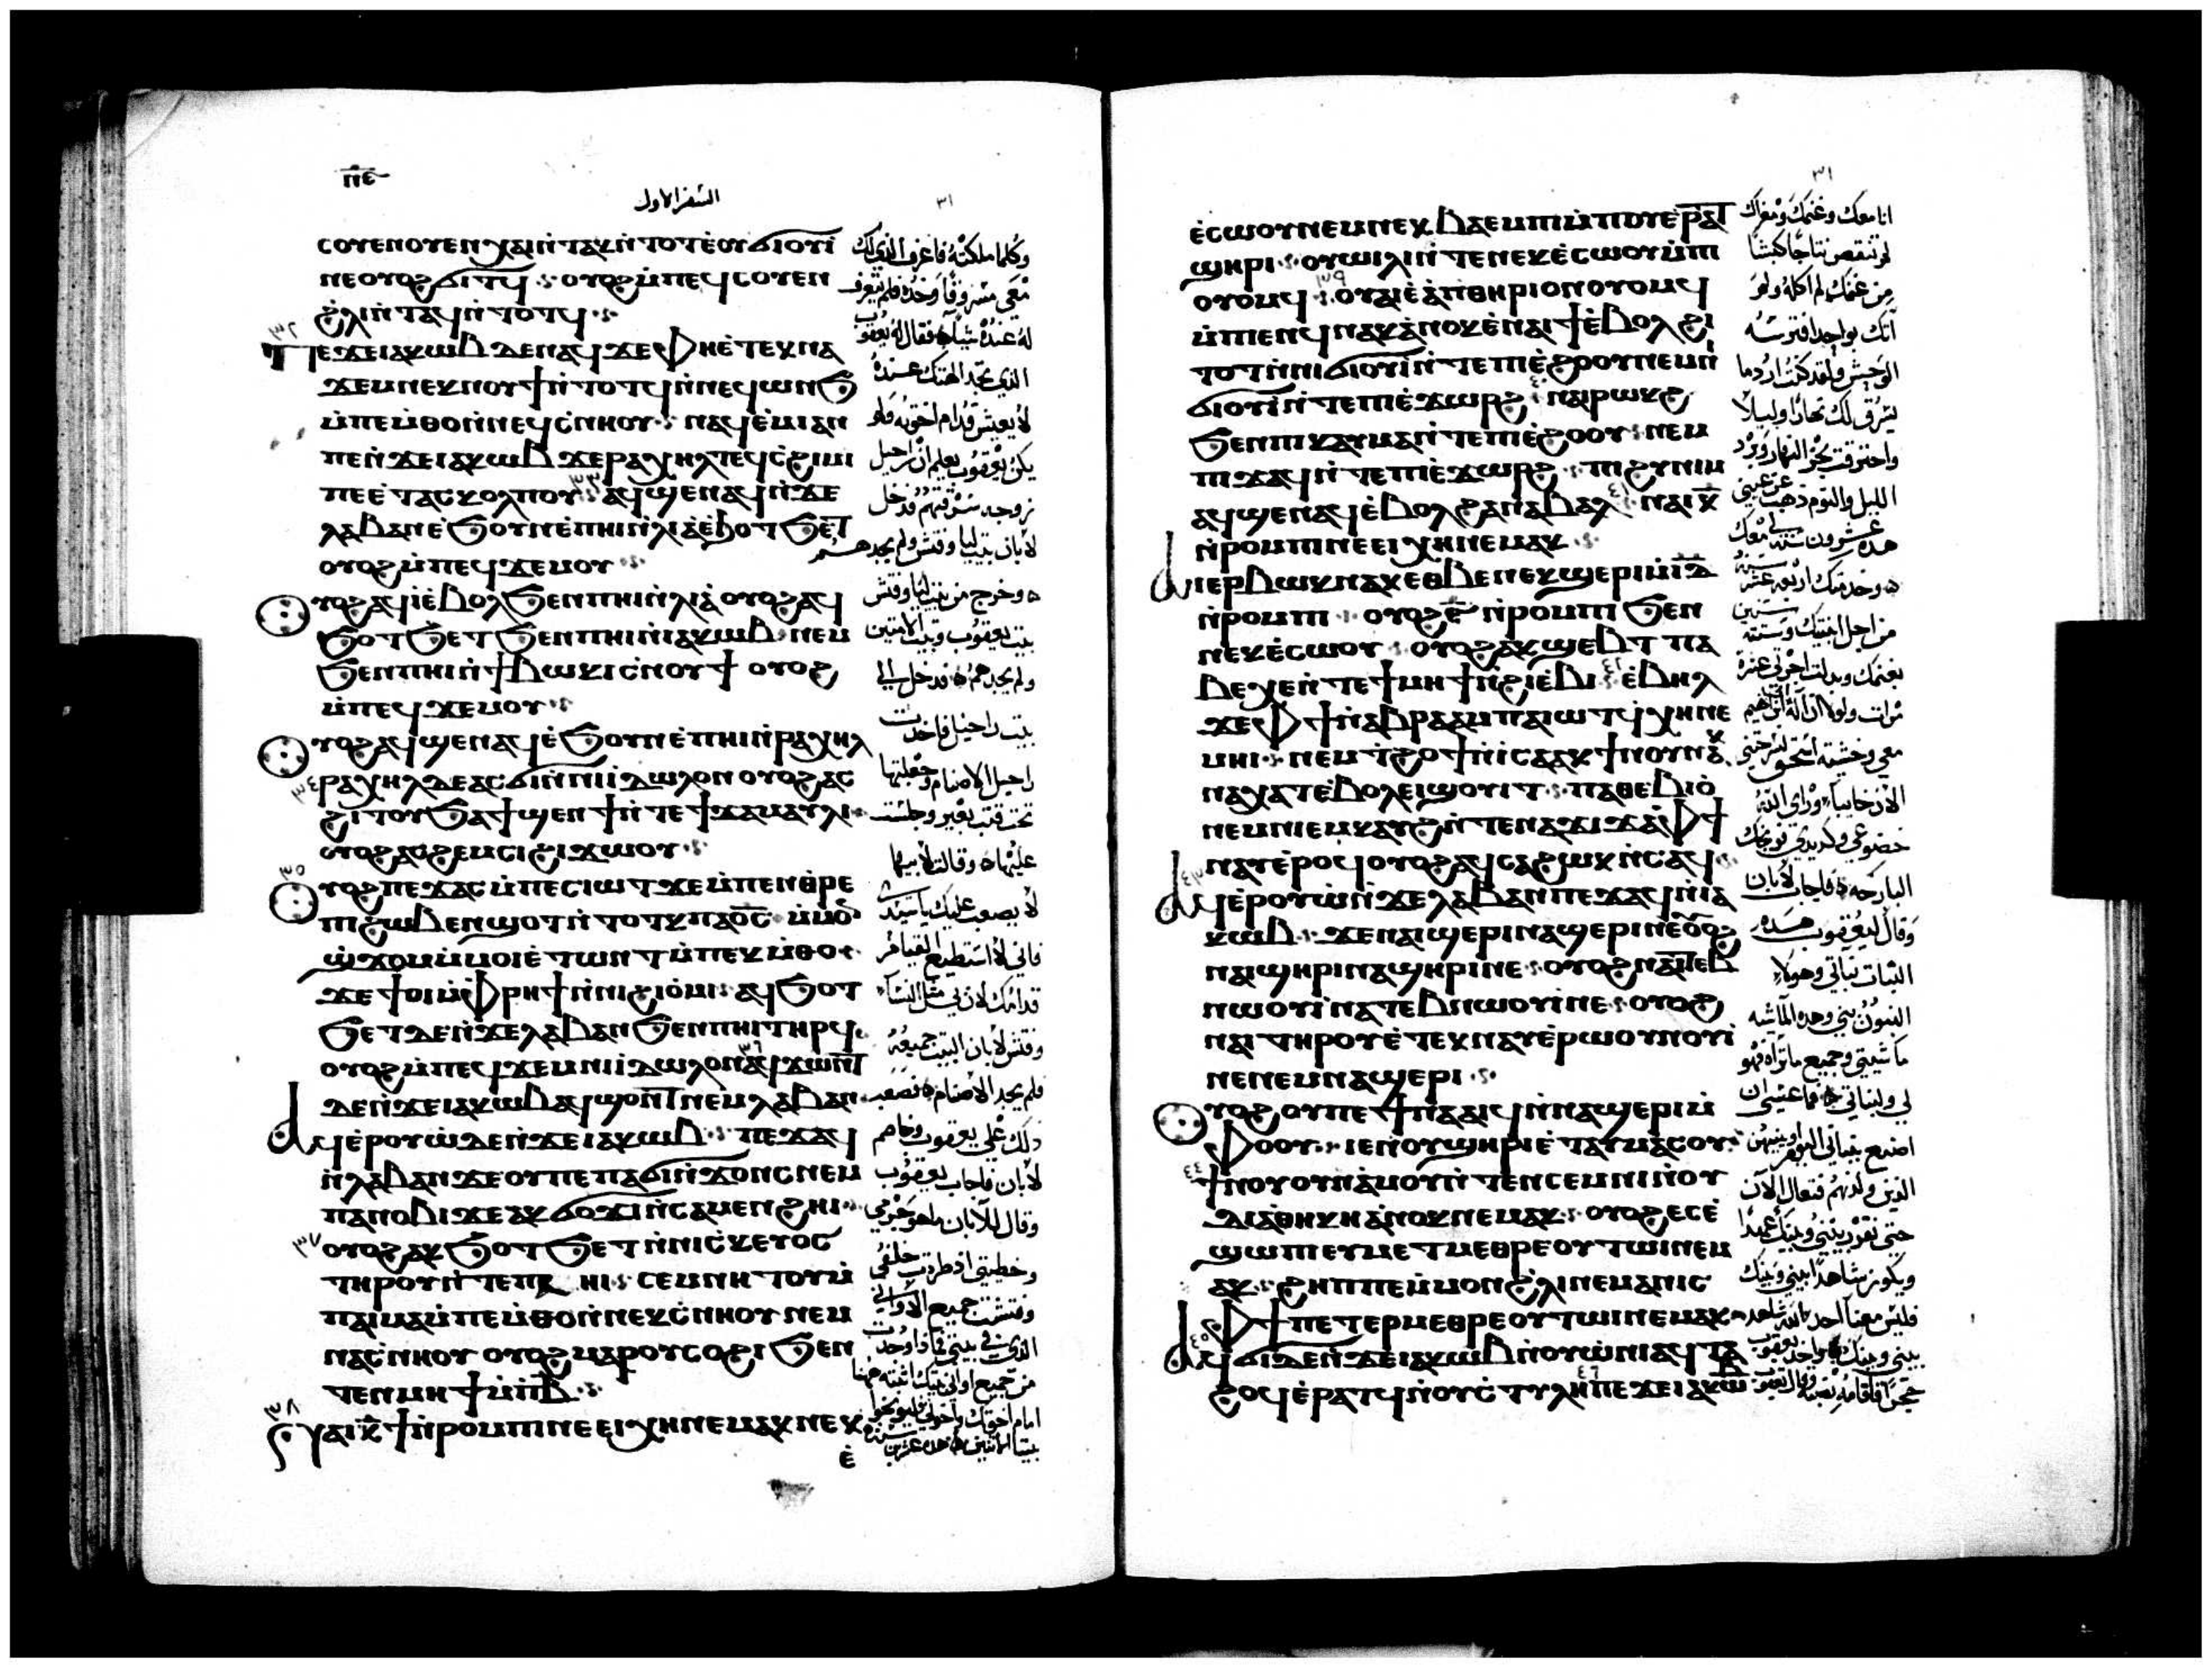 ⲡ̅ⲉ̅
السفر الاول
٣١
ⲥⲟⲩⲉⲛⲟⲩⲉⲛⲭⲁⲓⲛ̀ⲧⲁⲕⲛ̀ⲧⲟⲧⲉ̀ⲟⲩϭⲓⲟⲩⲓ̀
ⲛⲉⲟⲩⲟϩϭⲓⲧϥ ⲟⲩⲟϩⲙ̀ⲡⲉϥⲥⲟⲩⲉⲛ
ϩ̀ⲗⲓⲛ̀ⲧⲁϥⲛ̀ⲧⲟⲧϥ
٣٢
ⲡⲉϫⲉⲓⲁⲕⲱⲃⲇⲉⲛⲁϥϫⲉⲫⲏⲉ̀ⲧⲉⲕⲛⲁ
ϫⲉⲙⲛⲉⲕⲛⲟⲩϯⲛ̀ⲧⲟⲧϥⲛ̀ⲛⲉϥⲱⲛϧ
ⲙ̀ⲡⲉⲙ̀ⲑⲟⲛ̀ⲛⲉϥⲥ̀ⲛⲏⲟⲩ ⲛⲁϥⲉ̀ⲙⲓⲁⲛ
ⲡⲉⲛ̀ϫⲉⲓⲁⲕⲱⲃϫⲉⲣⲁⲭⲏⲗⲧⲉϥⲥ̀ϩⲓⲙⲓ
ⲡⲉⲉ̀ⲧⲁⲥⲕⲟⲗⲡⲟⲩ ٣٣ ⲁϥϣⲉⲛⲁϥⲛ̀ϫⲉ
ⲗⲁⲃⲁⲛⲉ̀ϧⲟⲩⲛⲉ̀ⲡⲏⲓⲛ̀ⲗⲓⲁⲉ̀ϧⲟⲧϧⲉⲧ
ⲟⲩⲟϩⲙ̀ⲡⲉϥϫⲉⲙⲟⲩ
ⲟⲩⲟϩⲁϥⲓ̀ⲉ̀ⲃⲟⲗϧⲉⲛⲡⲏⲓⲛ̀ⲗⲓⲁ̀ ⲟⲩⲟϩⲁϥ
ϧⲟⲧϧⲉⲧϧⲉⲛⲡⲏⲓⲛ̀ⲓⲁⲕⲱⲃ ⲛⲉⲙ
ϧⲉⲛⲡⲏⲓⲛ̀ϯⲃⲱⲕⲓⲥ̀ⲛⲟⲩϯ ⲟⲩⲟϩ
ⲙ̀ⲡⲉϥϫⲉⲙⲟⲩ
ⲟⲩⲟϩⲁϥϣⲉⲛⲁϥⲉ̀ϧⲟⲩⲛⲉ̀ⲡⲏⲓⲛ̀ⲣⲁⲭⲏⲗ
٣٤ ⲣⲁⲭⲏⲗⲇⲉⲁⲥϭⲓⲛ̀ⲛⲓⲓ̀ⲇⲱⲗⲟⲛ ⲟⲩⲟϩⲁⲥ
ϩⲓⲧⲟⲩϧⲁϯϣⲉⲛϯⲛ̀ⲧⲉϯϫⲁⲙⲁⲩⲗⲓ
ⲟⲩⲟϩⲁⲥϩⲉⲙⲥⲓϩⲓϫⲱⲟⲩ
٣٥
ⲟⲩⲟϩⲡⲉϫⲁⲥⲙ̀ⲡⲉⲥⲓⲱⲧϫⲉⲙ̀ⲡⲉⲛⲑⲣⲉ
ⲡⲓϩⲱⲃⲉⲛϣⲟⲧⲛ̀ⲧⲟⲧⲕⲡⲁⲟ̅ⲥ̅ ⲙ̀ⲙⲟⲛ
ϣ̀ϫⲟⲙⲙ̀ⲙⲟⲓⲉ̀ⲧⲱⲛⲧⲙ̀ⲡⲉⲕⲙ̀ⲑⲟ
ϫⲉϯⲟⲓⲙ̀ⲫⲣⲏϯⲛ̀ⲛⲓϩⲓⲟ̀ⲙⲓ ⲁϥϧⲟⲧ
ϧⲉⲧⲇⲉⲛ̀ϫⲉⲗⲁⲃⲁⲛϧⲉⲛⲡⲏⲓⲧⲏⲣϥ
ⲟⲩⲟϩⲙ̀ⲡⲉϥϫⲉⲙⲛⲓⲓ̀ⲇⲱⲗⲟⲛ ٣٦ ⲁϥϫⲱⲛⲧ
ⲇⲉⲛ̀ϫⲉⲓⲁⲕⲱⲃⲁϥϣⲟⲛⲧⲛⲉⲙⲗⲁⲃⲁⲛ
ⲁϥⲉ̀ⲣⲟⲩⲱ̀ⲇⲉⲛ̀ϫⲉⲓⲁⲕⲱⲃ ⲡⲉϫⲁϥ
ⲛ̀ⲗⲁⲃⲁⲛϫⲉⲟⲩⲡⲉⲡⲁϭⲓⲛ̀ϫⲟⲛⲥⲛⲉⲙ
ⲡⲁⲛⲟⲃⲓϫⲉⲁⲕϭⲟϫⲓⲛ̀ⲥⲁⲙⲉⲛϩⲏⲓ
٣٧ ⲟⲩⲟϩⲁⲕϧⲟⲧϧⲉⲧⲛ̀ⲛⲓⲥ̀ⲕⲉⲩⲟⲥ
ⲧⲏⲣⲟⲩⲛ̀ⲧⲉⲡⲁⲏⲓ ⲥⲉⲙⲛⲏⲧⲟⲩⲙ̀
ⲡⲁⲓⲙⲁⲙ̀ⲡⲉⲙ̀ⲑⲟⲛ̀ⲛⲉⲕⲥ̀ⲛⲏⲟⲩ ⲛⲉⲙ
ⲛⲁⲥ̀ⲛⲏⲟⲩ ⲟⲩⲟϩⲙⲁⲣⲟⲩⲥⲟϩⲓϧⲉⲛ
ⲧⲉⲛⲙⲏϯⲙ̀ⲡⲃ̅
٣٨
ϩⲁⲓⲕ̅ϯⲛ̀ⲣⲟⲙⲡⲓⲛⲉⲉⲓⲭⲏⲛⲉⲙⲁⲕⲛⲉⲕ
ⲉ̀
وكلما ملكته فاعرف الذي لك
معي مسروقا وخذه فلم يتعرف
له عنده شيئا فقال له يعقوب
الذي تجد الهتك عنده
لا يعيش قدام اخوته فلم
يكن يعقوب يعلم ان راحيل
زوجته سرقتهم فدخل
لابان بيت ليا وفتش ولم يجدهم
وخرج من بيت ليا وفتش
بيت يعقوب وبيت الامتين
ولم يجدهم فدخل الي
بيت راحيل فاخذت
راحيل الاصنام وجعلتها
تحت قتب بعير وجلست
عليها وقالت لابيها
لا يصعب عليك يا سيدي
فاني لا استطيع القيام
قدامك لان لي مثل النساء
وفتش لابان البيت جميعه
فلم يجد الاصنام فصعب
ذلك علي يعقوب وخاصم
لابان فاجاب يعقوب
وقال للابان ما هو جرمي
وخطيتي اذ طردت خلفي
وفتشت جميع الاواني
الذي في بيتي فماذا وجدت
من جميع اواني بيتك اثبته ههنا
امام اخوتك واخوتي
٣١
ⲉ̀ⲥⲱⲟⲩⲛⲉⲙⲛⲉⲕⲃⲁⲉⲙⲡⲓⲙ̀ⲡⲟⲩⲉⲣⲁⲧ
ϣⲏⲣⲓ ⲟⲩⲱⲓⲗⲓⲛ̀ⲧⲉⲛⲉⲕⲉ̀ⲥⲱⲟⲩⲙ̀ⲡⲓ
ⲟⲩⲟⲙϥ ٣٩ ⲟⲩⲁⲓⲉ̀ⲁ̀ⲡⲑⲏⲣⲓⲟⲛⲟⲩⲟⲙϥ
ⲙ̀ⲡⲉⲛϥⲛⲁⲕⲁ̀ⲛⲟⲕⲉ̀ⲛⲁⲓϯⲉ̀ⲃⲟⲗϩⲓ
ⲧⲟⲧⲛ̀ⲛⲓϭⲓⲟⲩⲓ̀ⲛ̀ⲧⲉⲡⲓⲉ̀ϩⲟⲟⲩⲛⲉⲙⲛⲓ
ϭⲓⲟⲩⲓ̀ⲛ̀ⲧⲉⲡⲓⲉ̀ϫⲱⲣϩ ٤٠ ⲛⲁⲓⲣⲱⲕϩ
ϧⲉⲛⲡⲓⲕⲁⲩⲙⲁⲛ̀ⲧⲉⲡⲓⲉ̀ϩⲟⲟⲩ ⲛⲉⲙ
ⲡⲓϫⲁϥⲛ̀ⲧⲉⲡⲓⲉ̀ϫⲱⲣϩ ⲡⲓϩⲩⲛⲓⲙ
ⲁϥϣⲉⲛⲁϥⲉ̀ⲃⲟⲗϩⲁⲛⲁⲃⲁⲗ ٤١ ϩⲁⲓⲕ̅
ⲛ̀ⲣⲟⲙⲡⲓⲛⲉⲉⲓⲭⲏⲛⲉⲙⲁⲕ
ⲁⲓⲉⲣⲃⲱⲕⲛⲁⲕⲉⲑⲃⲉⲛⲉⲕϣⲉⲣⲓⲙ̀ⲓ̅ⲇ̅
ⲛ̀ⲣⲟⲙⲡⲓ ⲟⲩⲟϩⲋ̅ⲛ̀ⲣⲟⲙⲡⲓϧⲉⲛ
ⲛⲉⲕⲉ̀ⲥⲱⲟⲩ ⲟⲩⲟϩⲁⲕϣⲉⲃⲧⲡⲁ
ⲃⲉⲭⲉⲛ̀ⲧⲉϯⲙⲏϯⲛ̀ϩⲓⲉ̀ⲃⲓ ٤٢ ⲉ̀ⲃⲏⲗ
ϫⲉⲫϯⲛ̀ⲁⲃⲣⲁⲁⲙⲡⲁⲓⲱⲧϥ̀ⲭⲏⲛⲉ
ⲙⲏⲓ ⲛⲉⲙⲧ̀ϩⲟϯⲛ̀ⲓⲥⲁⲁⲕϯⲛⲟⲩⲛⲁⲕ
ⲛⲁⲭⲁⲧⲉ̀ⲃⲟⲗⲉⲓϣⲟⲩⲓⲧ ⲡⲁⲑⲉⲃⲓⲟ̀
ⲛⲉⲙⲛⲓⲉⲙⲕⲁⲩϩⲛ̀ⲧⲉⲛⲁϫⲓϫⲁ̀ⲫϯ
ⲛⲁⲩⲉ̀ⲣⲟϥⲟⲩⲟϩⲁϥⲥⲁϩⲱⲕⲛ̀ⲥⲁϥ
٤٣ ⲁϥⲉ̀ⲣⲟⲩⲱ̀ⲛ̀ϫⲉⲗⲁⲃⲁⲛⲡⲉϫⲁϥⲛ̀ⲓⲁ
ⲕⲱⲃ ϫⲉⲛⲁⲓϣⲉⲣⲓⲛⲁϣⲉⲣⲓⲛⲉⲟⲩⲟϩ
ⲛⲁⲓϣⲏⲣⲓⲛⲁϣⲏⲣⲓⲛⲉ ⲟⲩⲟϩⲛⲁⲓⲧⲉⲃ
ⲛⲱⲟⲩⲓ̀ⲛⲁⲧⲉⲃⲛⲱⲟⲩⲓ̀ⲛⲉ ⲟⲩⲟϩ
ⲛⲁⲓⲧⲏⲣⲟⲩⲉ̀ⲧⲉⲕⲛⲁⲩⲉ̀ⲣⲱⲟⲩⲛⲟⲩⲓ̀
ⲛⲉⲛⲉⲙⲛⲁϣⲉⲣⲓ
ⲟⲩⲟϩⲟⲩⲡⲉϯⲛⲁⲁⲓϥⲛ̀ⲛⲁϣⲉⲣⲓⲙ̀
ⲫⲟⲟⲩ ⲓⲉⲛⲟⲩϣⲏⲣⲓⲉ̀ⲧⲁⲩⲙⲁⲥⲟⲩ
٤٤ ϯⲛⲟⲩⲟⲩⲛⲁ̀ⲙⲟⲩⲛ̀ⲧⲉⲛⲥⲉⲙⲛⲓⲛ̀ⲟⲩ
ⲇⲓⲁⲑⲏⲕⲏⲁ̀ⲛⲟⲕⲛⲉⲙⲁⲕ ⲟⲩⲟϩⲉⲥⲉ̀
ϣⲱⲡⲓⲉⲩⲙⲉⲧⲙⲉⲑⲣⲉⲟⲩⲧⲱⲓⲛⲉⲙ
ⲁⲕ ϩⲏⲡⲡⲉⲙ̀ⲙⲟⲛϩ̀ⲗⲓⲛⲉⲙⲁⲛⲓⲥ
ⲫϯⲡⲉⲧⲉⲣⲙⲉⲑⲣⲉⲟⲩⲧⲱⲓⲛⲉⲙⲁⲕ
٤٥ ⲁϥϭⲓⲇⲉⲛ̀ϫⲉⲓⲁⲕⲱⲃⲛ̀ⲟⲩⲱ̀ⲛⲓⲁϥⲧⲁ
ϩⲟϥⲉ̀ⲣⲁⲧϥⲛ̀ⲟⲩⲥ̀ⲧⲩⲗⲏ ٤٦ ⲡⲉϫⲉⲓⲁⲕⲱⲃ
انا معك وغنمك ومعزاك
لم تنقص نتاجا كبشا
من غنمك لم اكله ولم
اتك بواحد افترسه
الوحش ولقد كنت ارد ما
يسرق لك نهارا وليلا
واحترقت بحر النهار وبرد
الليل والنوم ذهب عن عيني
هذه عشرون سنة لي معك
وخدمتك اربعة عشر سنة
من اجل ابنتيك وستة سنين
بغنمك وبدلت اجرتي عشرة
مرات ولولا ان اله ابي ابرهيم
معي وخشية اسحق لسرحتني
الان خايبا وراي الله
خضوعي وكد يدي فوبخك
البارحه فاجاب لابان
وقال ليعقوب هذه
البنات بناتي وهولاء
البنون بني وهذه الماشيه
ماشيتي وجميع ما تراه فهو
لي ولبناتي فما عسي ان
اصنع ببناتي اليوم او ببنيهن
الذين ولدنهم فتعال الان
حتي نقرر بيني وبينك عهدا
ويكون شاهدا بيني وبينك